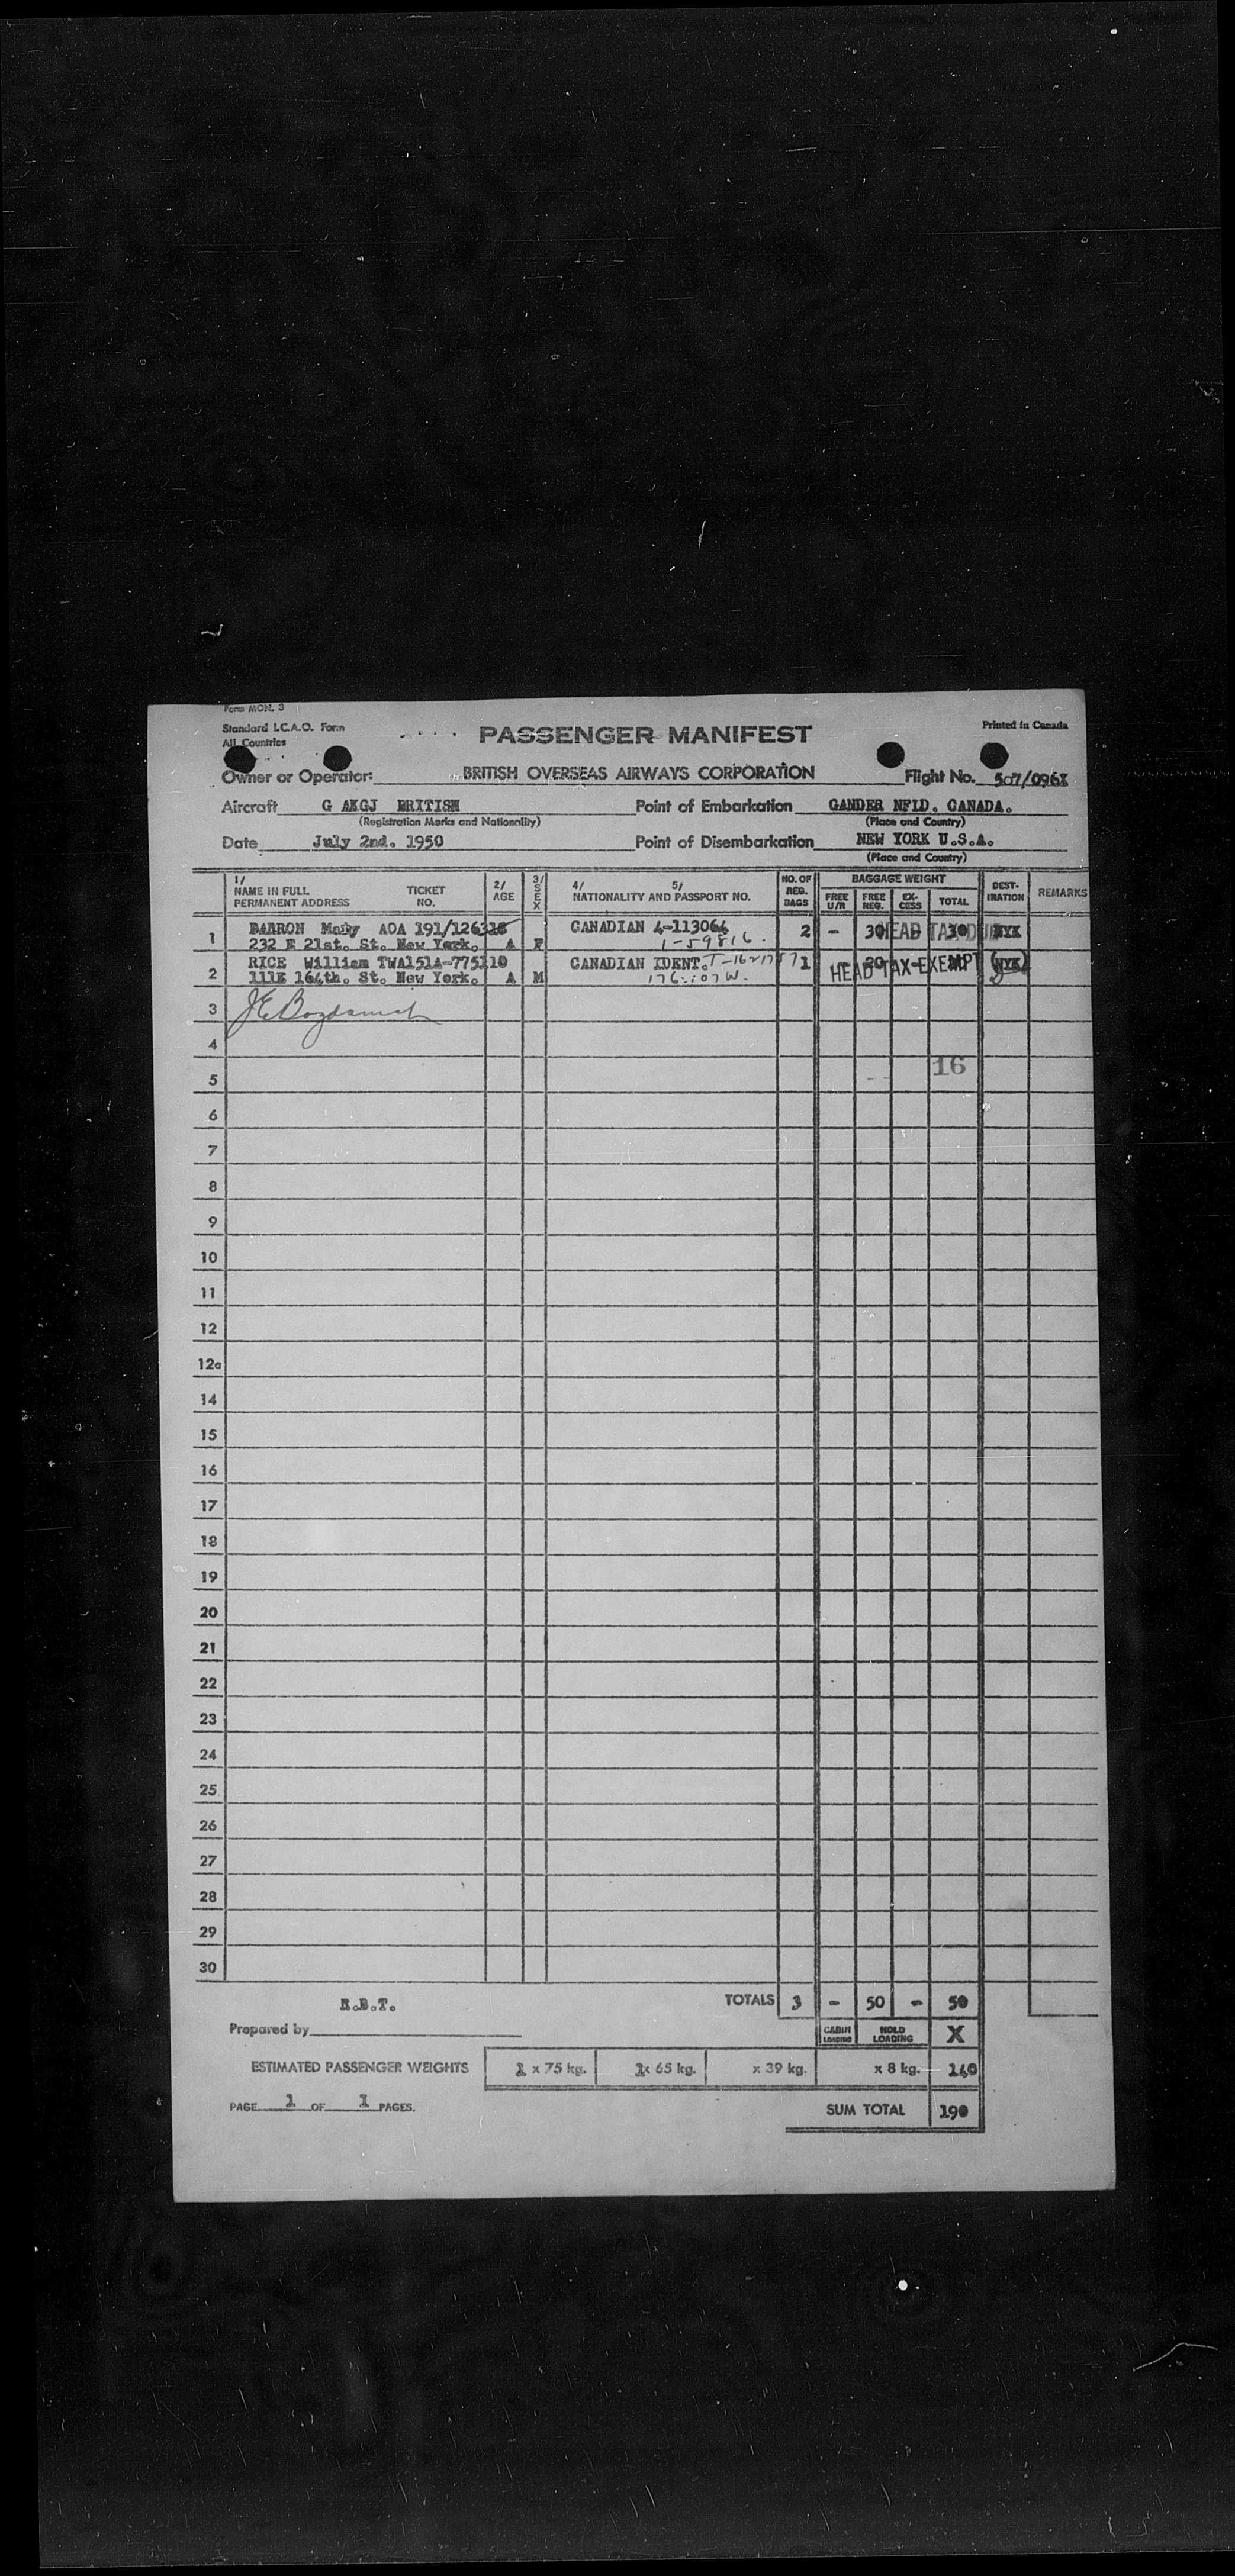 Form MON. 3
Standard I.C.A.O. Form
All Countries
PASSENGER MANIFEST
Printed in Canada
Owner or Operator: BRITISH OVERSEAS AIRWAYS CORPORATION Flight No. 507/096X
Aircraft G AKGJ BRITISH Point of Embarkation GANDER NFLD. CANADA.
(Registration Marks and Nationality) (Place and Country)
Date July 2nd. 1950 Point of Disembarkation NEW YORK U.S.A.
(Place and Country)
1/ NAME IN FULL PERMANENT ADDRESS TICKET NO. 2/ AGE 3/ SEX 4/ 5/ NATIONALITY AND PASSPORT NO. NO. OF REG. BAGS BAGGAGE WEIGHT FREE U/R FREE REG. EX-CESS TOTAL DEST-INATION REMARKS
1 BARRON Mary AOA 191/126318 CANADIAN 4-113064 2 - 30 - 30 NYK
HEAD TAX DUE
232 E 21st. St. New York. A F 1-59816.
2 RICE William TWA151A-775110 CANADIAN IDENT. 1 - 20 - 20 NYK
HEAD TAX-EXEMPT
111E 164th. St. New York. A M
3
4
16
5
6
7
8
9
10
11
12
12a
14
15
16
17
18
19
20
21
22
23
24
25
26
27
28
29
30
R.B.T. TOTALS 3 - 50 - 50
Prepared by CABIN LOADING HOLD LOADING X
ESTIMATED PASSENGER WEIGHTS 1 x 75 kg. 1x 65 kg. x 39 kg. x 8 kg. 140
PAGE 1 OF 1 PAGES. SUM TOTAL 190